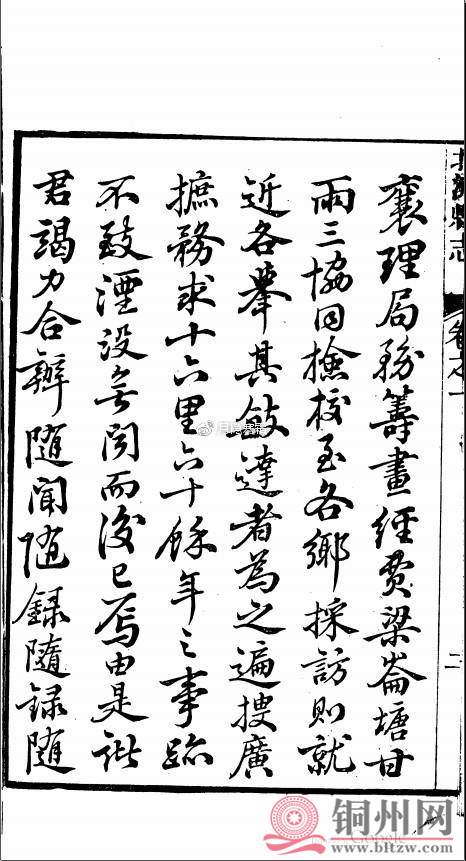 北流縣志
卷之一
二
襄理局務籌畫經費梁崙塘甘
雨三協同檢校至各鄉採訪則就
近各舉其敏達者為之遍搜廣
摭務求十六里六十餘年之事跡
不致湮沒無聞而後已焉由是諸
君竭力合辦隨聞隨録隨録隨
铜州网
www.bltzw.com